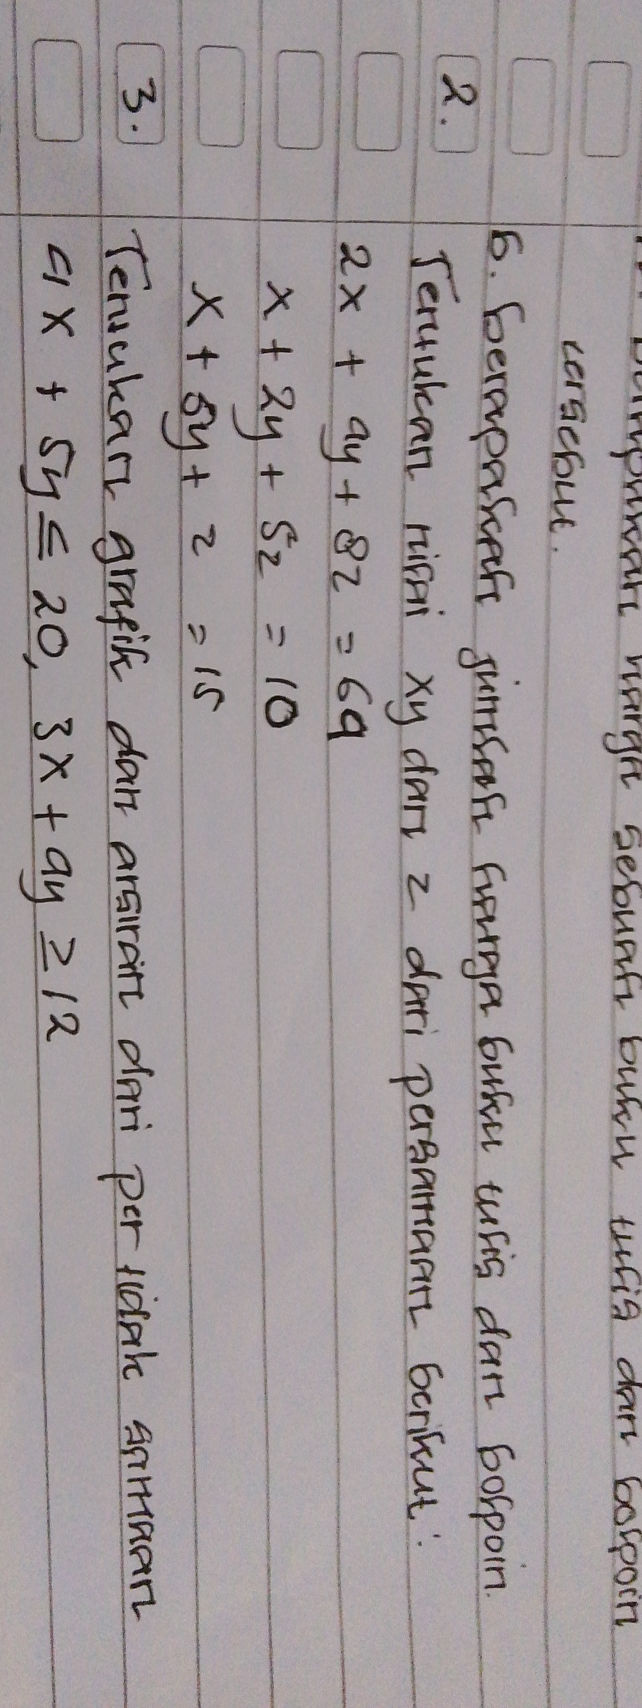 harga sebuah buku tulis dan bolpoin
tersebut.
b. berapakah jumlah harga buku tulis dan bolpoin.
2. Tentukan nilai xy dan z dari persamaan berikut :
2x + 4y + 8z = 64
x + 2y + 5z = 10
x + 5y + z = 15
3. Tentukan grafik dan arsiran dari per tidak samaan
4x + 5y ≤ 20, 3x + 4y ≥ 12